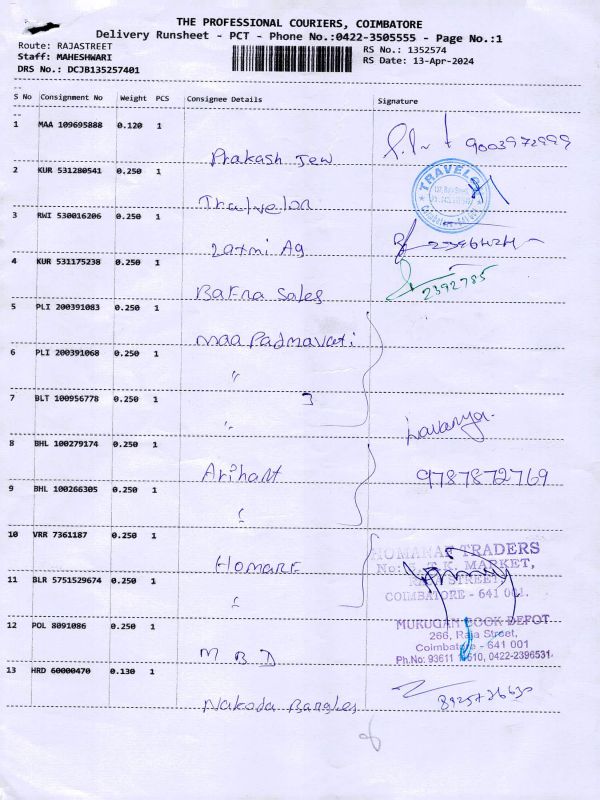 THE PROFESSIONAL COURIERS, COIMBATORE
Delivery Runsheet - PCT - Phone No.:0422-3505555 - Page No.:1
Route: RAJASTREET
RS No.: 1352574
Staff: MAHESHWARI
RS Date: 13-Apr-2024
DRS No.: DCJB135257401
S No Consignment No Weight PCS Consignee Details Signature
1 MAA 109695888 0.120 1
Prakash Jew 9003972999
2 KUR 531280541 0.250 1
TRAVELO
3 RWI 530016206 0.250 1
Laxmi Ag
4 KUR 531175238 0.250 1
Bafna Sales 2392785
5 PLI 200391083 0.250 1
Maa Padmavati
6 PLI 200391068 0.250 1
"
7 BLT 100956778 0.250 1
3
"
Lavanya.
8 BHL 100279174 0.250 1
Arihant 9787872769
9 BHL 100266305 0.250 1
10 VRR 7361187 0.250 1
TRADERS
MARKET,
Homare
11 BLR 5751529674 0.250 1
STREET,
COIMBATORE - 641 001.
12 POL 8091086 0.250 1
MURUGAN BOOK DEPOT
266, Raja Street,
Coimbatore - 641 001
M B D
0422-2396531
13 HRD 60000470 0.130 1
Nakoda Bangles